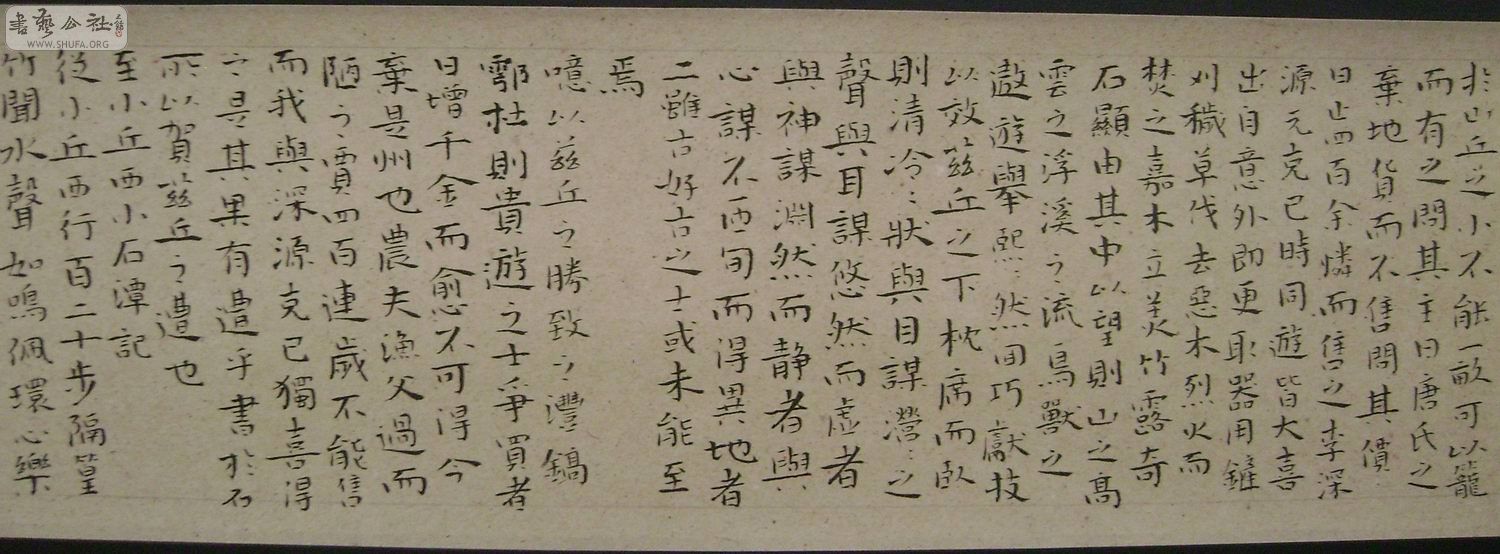 書藝公社
WWW.SHUFA.ORG
於山丘之小不能一畝可以籠
而有之問其主曰唐氏之
棄地貨而不售問其價
曰止四百余憐而售之李深
源元克已時同遊皆大喜
出自意外即更取器用鏟
刈穢草伐去惡木烈火而
焚之嘉木立美竹露奇
石顯由其中以望則山之高
雲之浮溪之流鳥獸之
遨遊舉熙:然回巧獻技
以效茲丘之下枕席而臥
則清泠:狀與目謀瀯:之
聲與耳謀悠然而虛者
與神謀淵然而静者與
心謀不匝旬而得異地者
二雖古好古之士或未能至
焉
噫以茲丘之勝致之灃鎬
鄠杜則貴遊之士爭買者
日增千金而愈不可得今
棄是州也農夫漁父過而
陋之賈四百連歲不能售
而我與深源克已獨喜得
之是其果有遭乎書於石
所以賀茲丘之遭也
至小丘西小石潭記
從小丘西行百二十步隔篁
竹聞水聲如鳴佩環心樂